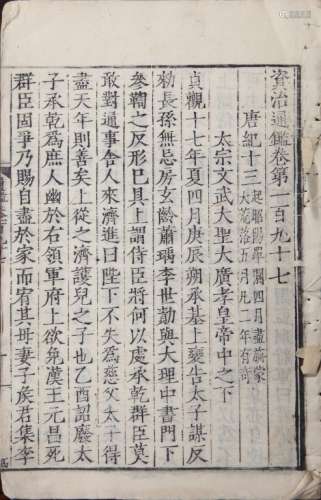 資治通鑑卷第一百九十七
唐紀十三
起昭陽單閼四月盡旃蒙
大荒落五月凡二年有奇
太宗文武大聖大廣孝皇帝中之下
貞觀十七年夏四月庚辰朔承基上變告太子謀反
勑長孫無忌房玄齡蕭瑀李世勣與大理中書門下
參鞫之反形已具上謂侍臣將何以處承乾群臣莫
敢對通事舍人來濟進曰陛下不失為慈父太子得
盡天年則善矣上從之濟護兒之子也乙酉詔廢太
子承乾為庶人幽於右領軍府上欲免漢王元昌死
群臣固爭乃賜自盡於家而宥其母妻子侯君集李